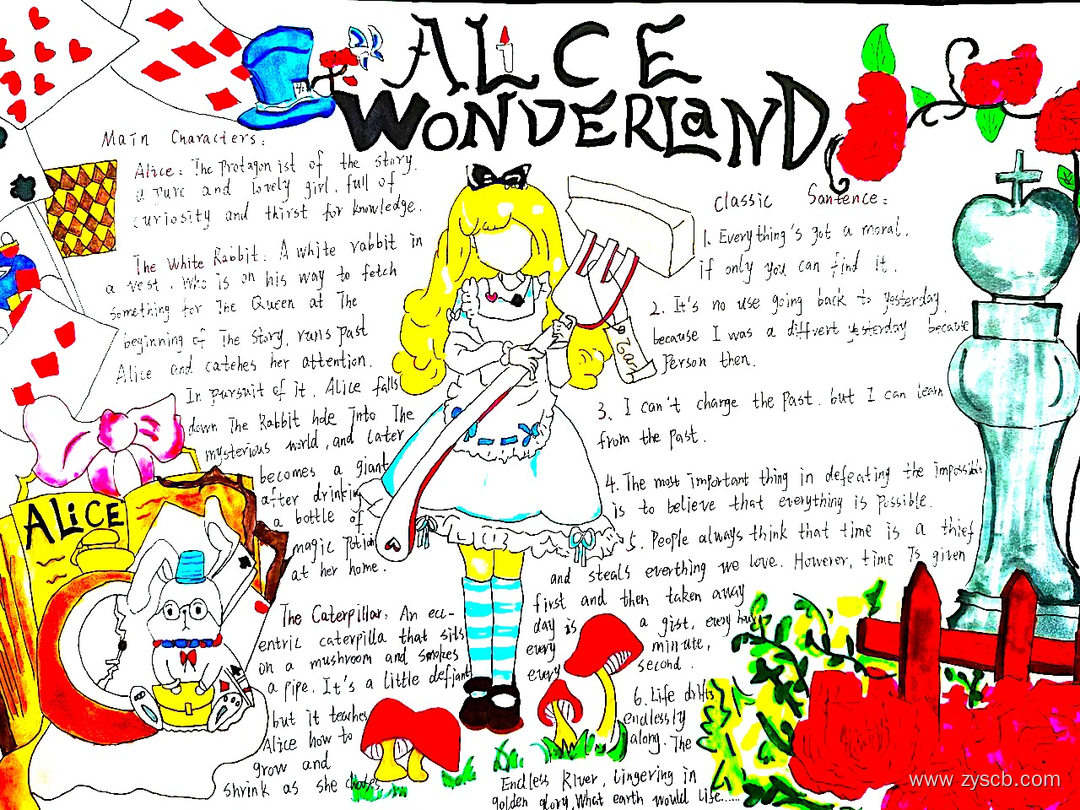 ALICE
WONDERLAND
Main Characters:
Alice: The Protagonist of the story.
a pure and lovely girl. full of
curiosity and thirst for knowledge.
The White Rabbit: A white rabbit in
a vest. Who is on his way to fetch
something for The Queen at The
beginning of The story, runs past
Alice and catches her attention.
In pursuit of it. Alice falls
down The Rabbit hole Into The
mysterious world, and later
becomes a giant
after drinking
a bottle of
magic Potion
at her home.
The Caterpillar: An ecc-
entric caterpilla that sits
on a mushroom and smokes
a pipe. It's a little defiant
but it teaches
Alice how to
grow and
shrink as she
ALICE
Classic Santence:
1. Everything's got a moral.
if only you can find it.
2. It's no use going back to yesterday,
because I was a diffvert yesterday because
Person then.
3. I can't charge the Past. but I can learn
from the past.
4. The most important thing in defeating the impossible
is to believe that everything is Possible.
5. People always think that time is a thief
and steals everthing we love. However, time is given
first and then taken away
day is a gist, every hour
every minute,
every second.
6. Life drifts
endlessly
along. The
Endless River, Lingering in
golden glory, What earth would life......
www.zyscb.com